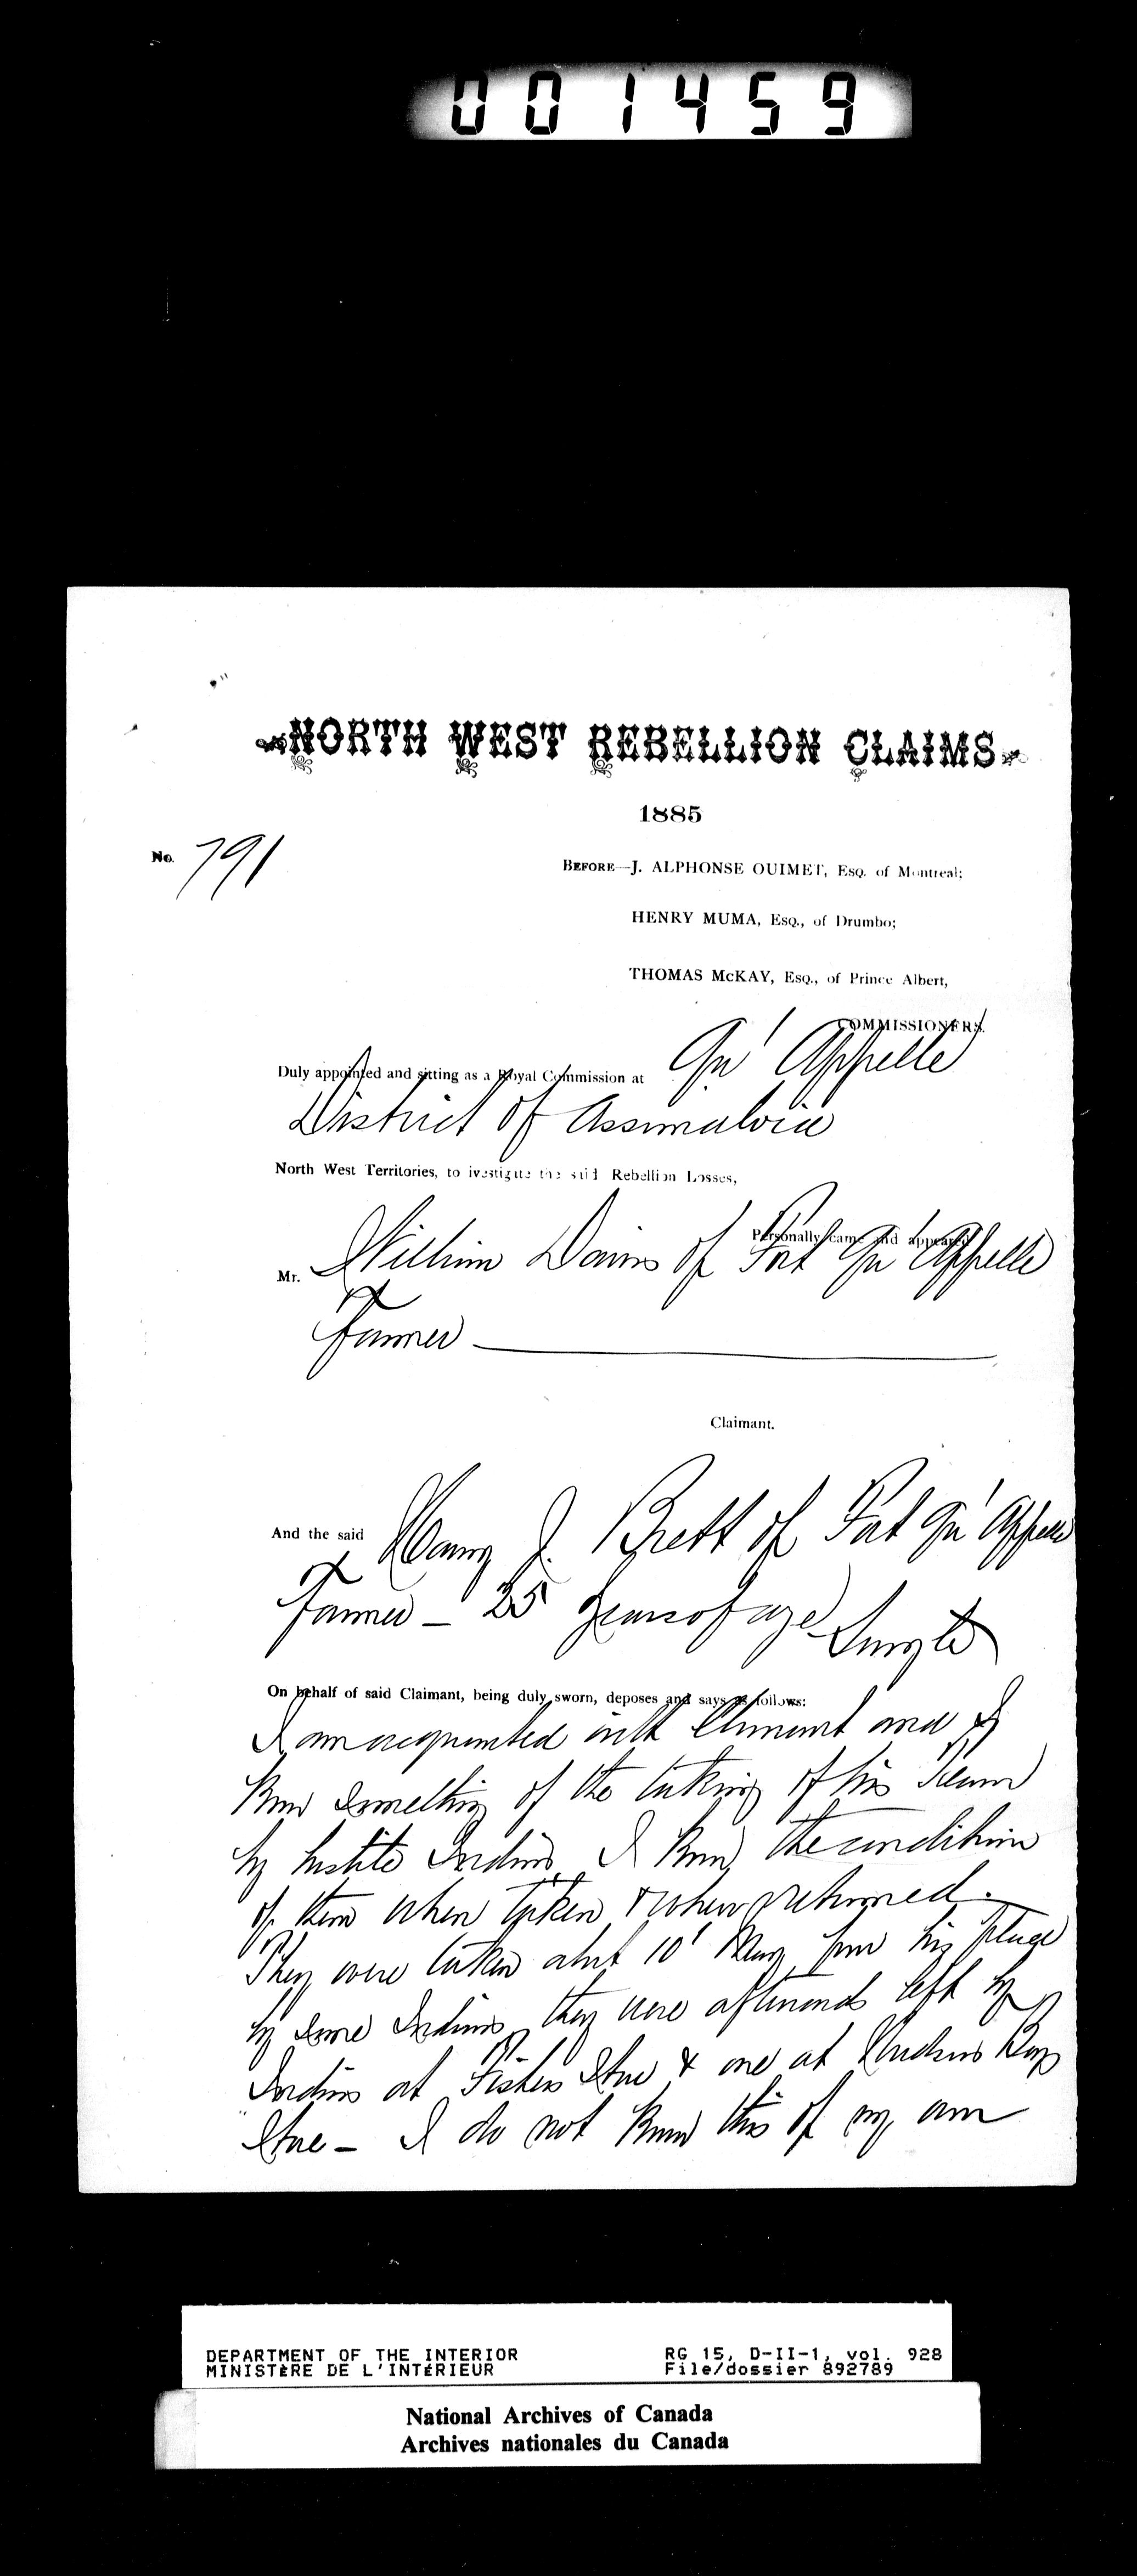 001459
NORTH WEST REBELLION CLAIMS
1885
No. 791
BEFORE—J. ALPHONSE OUIMET, Esq. of Montreal;
HENRY MUMA, Esq., of Drumbo;
THOMAS McKAY, Esq., of Prince Albert,
COMMISSIONERS.
Duly appointed and sitting as a Royal Commission at Qu'Appelle
District of Assinaboia
North West Territories, to ivestigate the said Rebellion Losses,
Personally came and appeared
Mr. William Davis of Fort Qu'Appelle
Farmer
Claimant.
And the said Harry J. Brett of Fort Qu'Appelle
Farmer — 25 years of age Single
On behalf of said Claimant, being duly sworn, deposes and says as follows:
I am acquainted with Claimant and I
know something of the taking of his team
by hostile Indians I know the condition
of them when taken & when returned.
They were taken abut 10th May from his place
by some Indians they were afterwards left by
Indians at Fishers Store & one at Hudsons Bay
Store — I do not know this of my own
DEPARTMENT OF THE INTERIOR
MINISTÈRE DE L'INTÉRIEUR
RG 15, D-II-1, vol. 928
File/dossier 892789
National Archives of Canada
Archives nationales du Canada